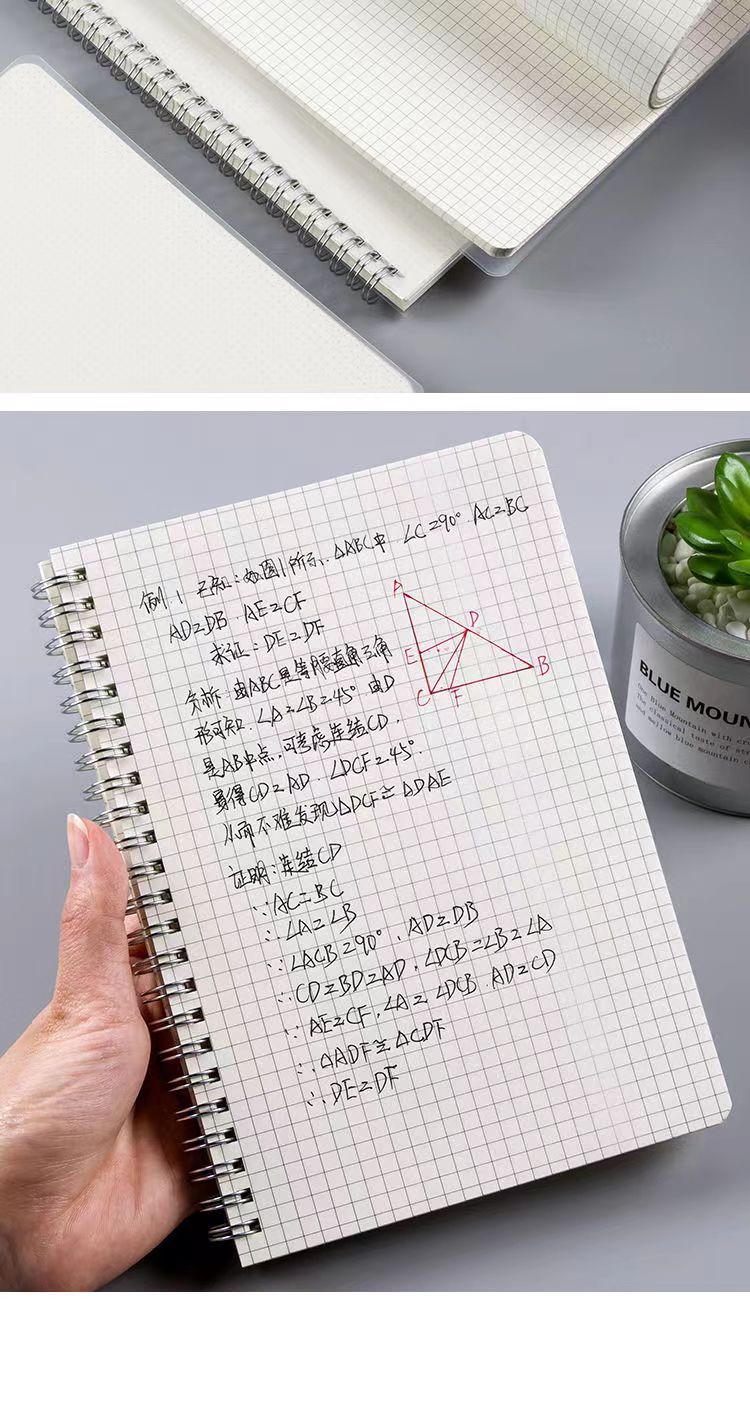 例1 已知:如图1所示,△ABC中.∠C=90°.AC=BC
AD=DB AE=CF
求证:DE=DF
A
D
E
B
C
F
分析:由ABC是等腰直角三角
形可知.∠A=∠B=45°由D
是AB中点,可考虑连结CD,
易得CD=AD.∠DCF=45°
从而不难发现△DCF≅△DAE
证明:连结CD
∵AC=BC
∴∠A=∠B
∵∠ACB=90°.AD=DB
∴CD=BD=AD,∠DCB=∠B=∠A
∵AE=CF,∠A=∠DCB.AD=CD
∴△ADF≅△CDF
∴DE=DF
BLUE MOUN
One Blue Mountain with
The classical taste of
and mellow blue mountain